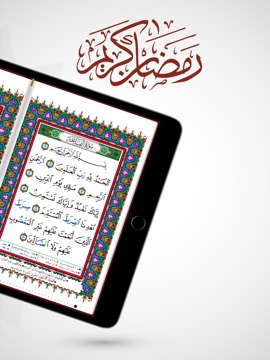 رمضان كريم
سورة الفاتحة
بسم الله الرحمن الرحيم
الحمد لله رب العلمين الرحمن
الرحيم ملك يوم الدين
إياك نعبد وإياك نستعين
اهدنا الصرط المستقيم صرط
الذين أنعمت عليهم غير المغضوب
عليهم ولا الضالين